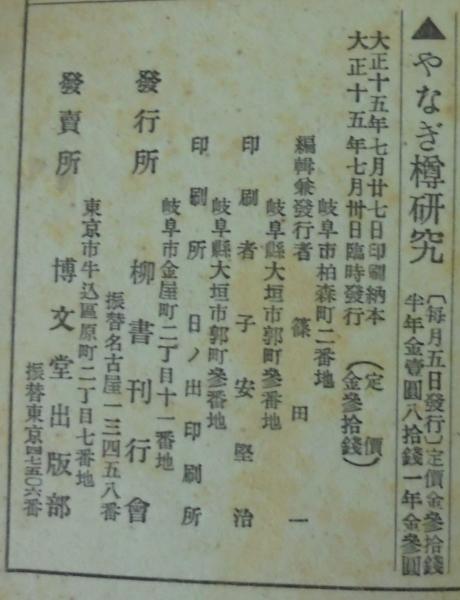 ▲やなぎ樽研究
〔每月五日發行〕定價金參拾錢
半年金壹圓八拾錢一年金參圓
大正十五年七月廿七日印刷納本
大正十五年七月卅日臨時發行
(定價
金參拾錢)
岐阜市柏森町二番地
編輯兼發行者 篠田一
岐阜縣大垣市郭町參番地
印刷者 子安堅治
岐阜縣大垣市郭町參番地
印刷所 日ノ出印刷所
岐阜市金屋町二丁目十一番地
發行所 柳書刊行會
振替名古屋一三四五八番
東京市牛込區原町二丁目七番地
發賣所 博文堂出版部
振替東京四七五〇六番